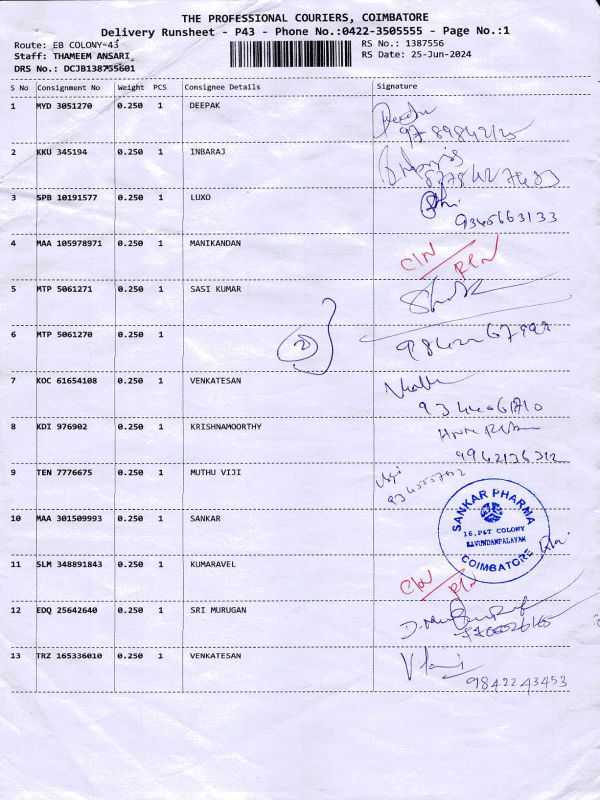 THE PROFESSIONAL COURIERS, COIMBATORE
Delivery Runsheet - P43 - Phone No.:0422-3505555 - Page No.:1
Route: EB COLONY-43
Staff: THAMEEM ANSARI
DRS No.: DCJB138755601
RS No.: 1387556
RS Date: 25-Jun-2024
S No Consignment No Weight PCS Consignee Details Signature
1 MYD 3051270 0.250 1 DEEPAK
2 KKU 345194 0.250 1 INBARAJ
3 SPB 10191577 0.250 1 LUXO
9345663133
4 MAA 105978971 0.250 1 MANIKANDAN
5 MTP 5061271 0.250 1 SASI KUMAR
6 MTP 5061270 0.250 1
2
7 KOC 61654108 0.250 1 VENKATESAN
8 KDI 976902 0.250 1 KRISHNAMOORTHY
9 TEN 7776675 0.250 1 MUTHU VIJI
10 MAA 301509993 0.250 1 SANKAR
SANKAR PHARMA
16, P&T COLONY
KAVUNDAMPALAYAM
COIMBATORE
11 SLM 348891843 0.250 1 KUMARAVEL
12 EDQ 25642640 0.250 1 SRI MURUGAN
13 TRZ 165336010 0.250 1 VENKATESAN
9842243453